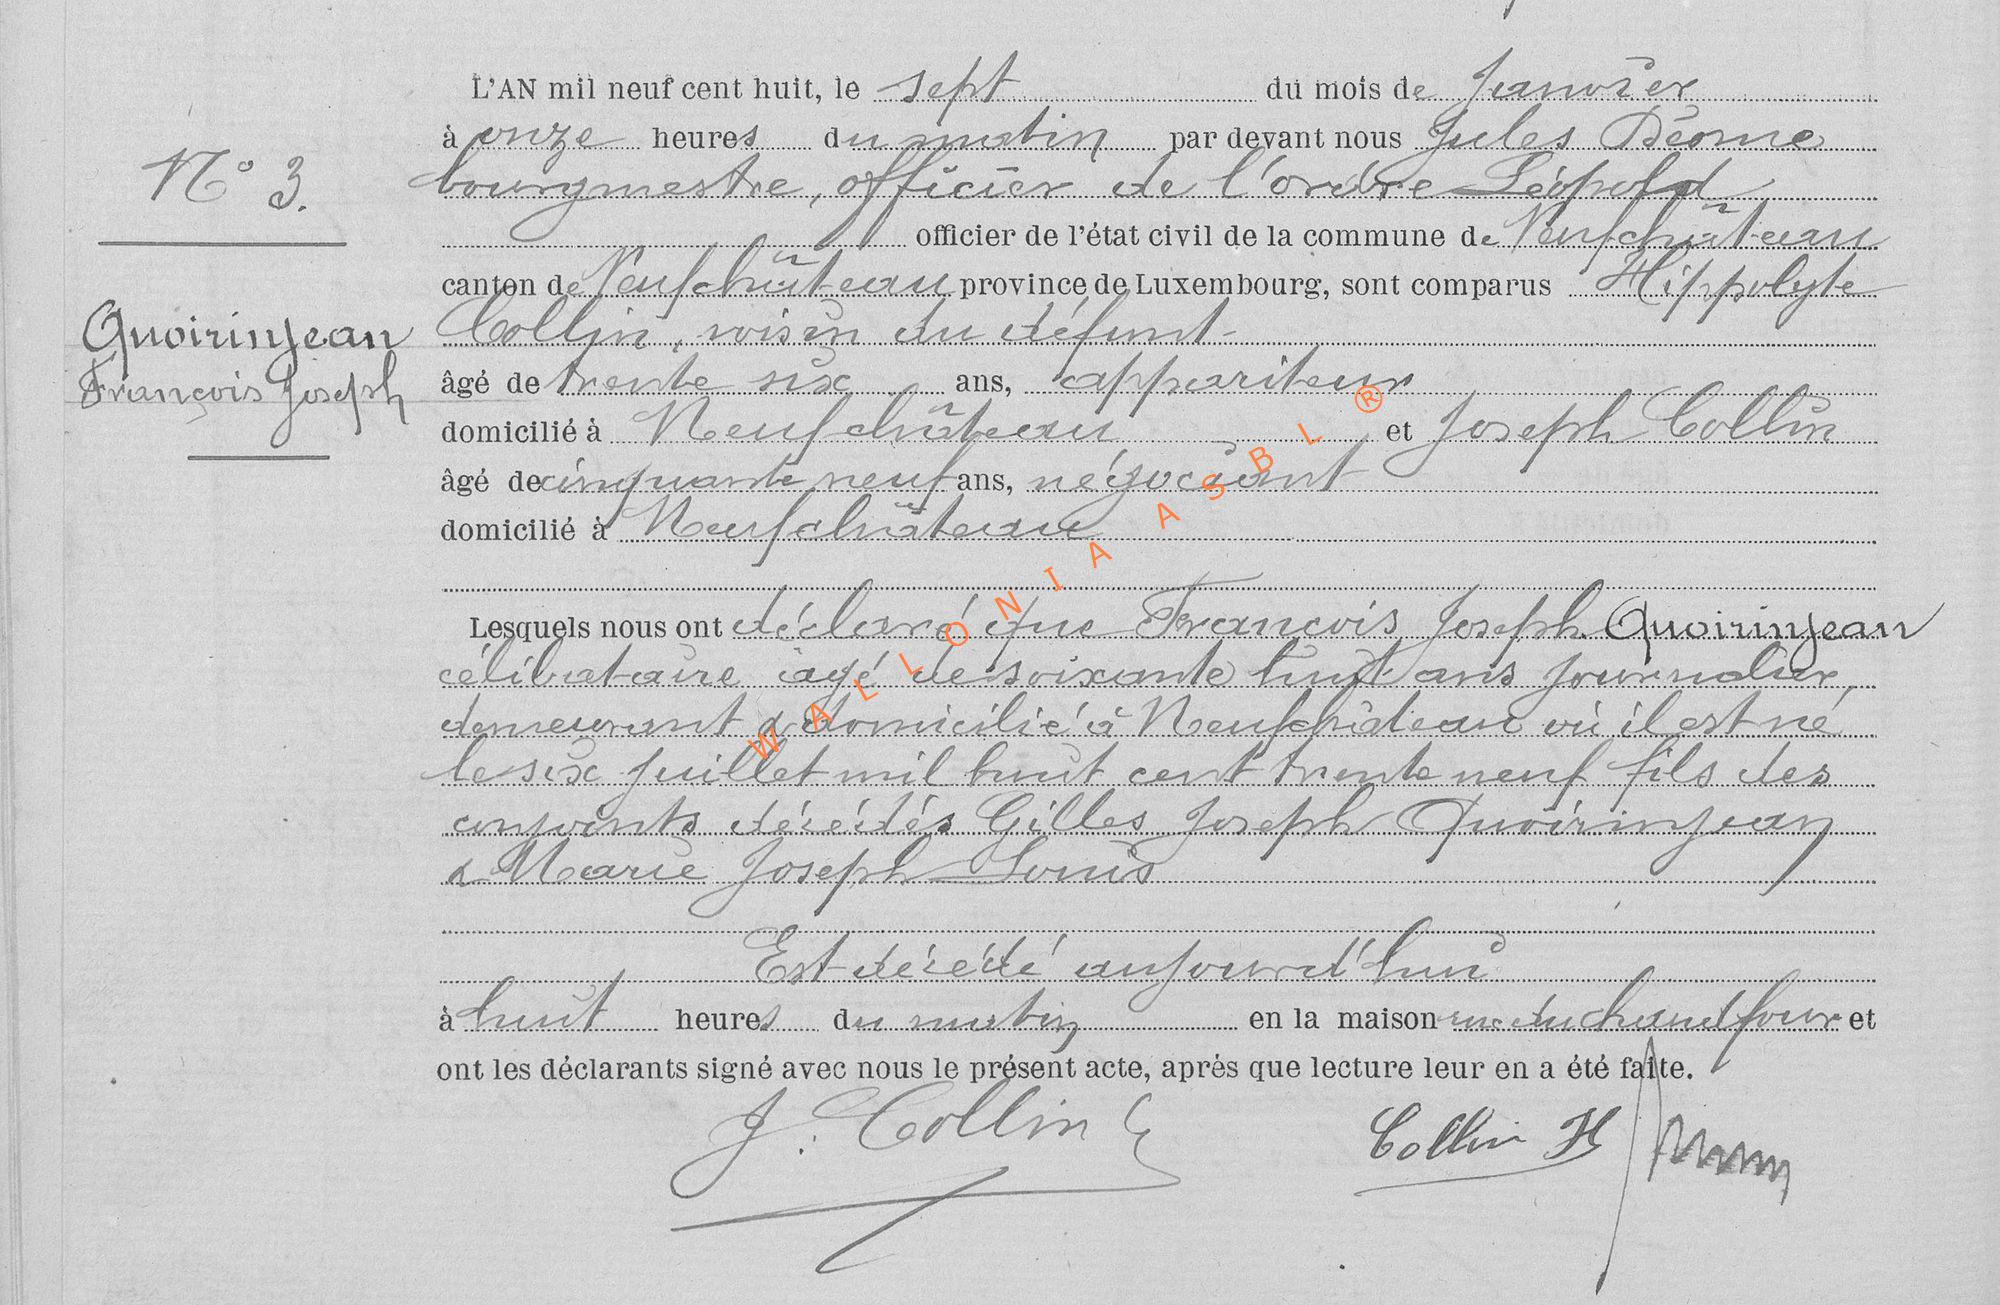 L'AN mil neuf cent huit, le sept du mois de Janvier
à onze heures du matin par devant nous Jules
N° 3.
bourgmestre, officier de l'ordre Léopold
officier de l'état civil de la commune de Neufchâteau
canton de Neufchâteau province de Luxembourg, sont comparus Hippolyte
Quoirinjean
François Joseph
Collin, voisin du défunt
âgé de trente six ans, appariteur
domicilié à Neufchâteau et Joseph Collin
âgé de cinquante neuf ans, négociant
domicilié à Neufchâteau
WALLONIA ASBL ®
Lesquels nous ont déclaré que François Joseph Quoirinjean
célibataire âgé de soixante huit ans journalier,
demeurant & domicilié à Neufchâteau où il est né
le six juillet mil huit cent trente neuf fils des
conjoints décédés Gilles Joseph Quoirinjean
& Marie Joseph Louis
Est décédé aujourd'hui
à huit heures du matin en la maison rue du chaud four et
ont les déclarants signé avec nous le présent acte, après que lecture leur en a été faite.
J. Collin
Collin H